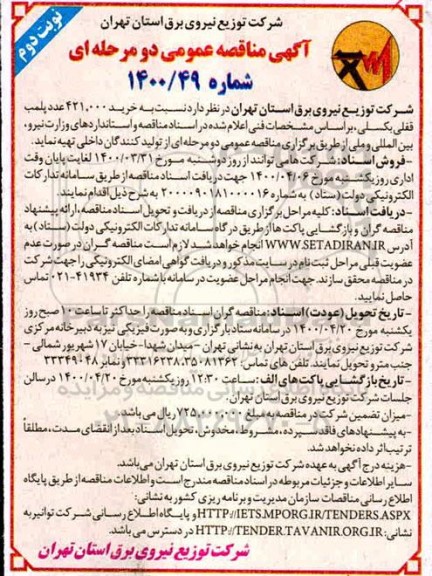 نوبت دوم
شرکت توزیع نیروی برق استان تهران
آگهی مناقصه عمومی دو مرحله ای
شماره ۱۴۰۰/۴۹
شرکت توزیع نیروی برق استان تهران در نظر دارد نسبت به خرید ۴۲۱,۰۰۰ عدد پلمب
قفلی بکسلی، بر اساس مشخصات فنی اعلام شده در اسناد مناقصه و استانداردهای وزارت نیرو،
بین المللی و ملی از طریق برگزاری مناقصه عمومی دو مرحله ای از تولید کنندگان داخلی تهیه نماید.
-فروش اسناد: شرکت هامی توانند از روز دوشنبه مورخ ۱۴۰۰/۰۳/۳۱ لغایت پایان وقت
اداری روز یکشنبه مورخ ۱۴۰۰/۰۴/۰۶ جهت دریافت اسناد مناقصه از طریق سامانه تدارکات
الکترونیکی دولت (ستاد) به شماره ۲۰۰۰۰۹۰۱۸۱۰۰۰۰۱۶ به شرح ذیل اقدام نمایند.
-دریافت اسناد: کلیه مراحل برگزاری مناقصه از دریافت و تحویل اسناد مناقصه، ارائه پیشنهاد
مناقصه گران و بازگشایی پاکت ها از طریق درگاه سامانه تدارکات الکترونیکی دولت (ستاد) به
آدرس WWW.SETADIRAN.IR انجام خواهد شد لازم است مناقصه گران در صورت عدم
عضویت قبلی مراحل ثبت نام در سایت مذکور و دریافت گواهی امضای الکترونیکی را جهت شرکت
در مناقصه محقق سازند. جهت انجام مراحل عضویت در سامانه با شماره تلفن ۴۱۹۳۴-۰۲۱ تماس
حاصل نمایید.
-تاریخ تحویل (عودت) اسناد: مناقصه گران اسناد مناقصه را حداکثر تا ساعت ۱۰ صبح روز
یکشنبه مورخ ۱۴۰۰/۰۴/۲۰ در سامانه ستاد بارگزاری و به صورت فیزیکی نیز به دبیرخانه مرکزی
شرکت توزیع نیروی برق استان تهران به نشانی تهران - میدان شهدا - خیابان ۱۷ شهریور شمالی -
جنب مترو تحویل نمایند. تلفن های تماس: ۳۵۰۸۱۳۶۲-۳۳۳۱۶۲۳۸ و نمابر ۴۸-۳۳۳۴۹
-تاریخ بازگشایی پاکت های الف: ساعت ۱۲:۳۰ روز یکشنبه مورخ ۱۴۰۰/۰۴/۲۰ در سالن
جلسات شرکت توزیع نیروی برق استان تهران.
-میزان تضمین شرکت در مناقصه به مبلغ ۷۲۵,۰۰۰,۰۰۰ ریال می باشد.
-به پیشنهادهای فاقد سپرده، مشروط، مخدوش، تحویل اسناد بعد از انقضای مدت، مطلقاً
ترتیب اثر داده نخواهد شد.
-هزینه درج آگهی به عهده شرکت توزیع نیروی برق استان تهران می باشد.
سایر اطلاعات و جزئیات مربوطه در اسناد مناقصه مندرج است و اطلاعات مناقصه از طریق پایگاه
اطلاع رسانی مناقصات سازمان مدیریت و برنامه ریزی کشور به نشانی:
HTTP://IETS.MPORG.IR/TENDERS.ASPX و پایگاه اطلاع رسانی شرکت توانیر به
نشانی: HTTP://TENDER.TAVANIR.ORG.IR در دسترس می باشد.
شرکت توزیع نیروی برق استان تهران